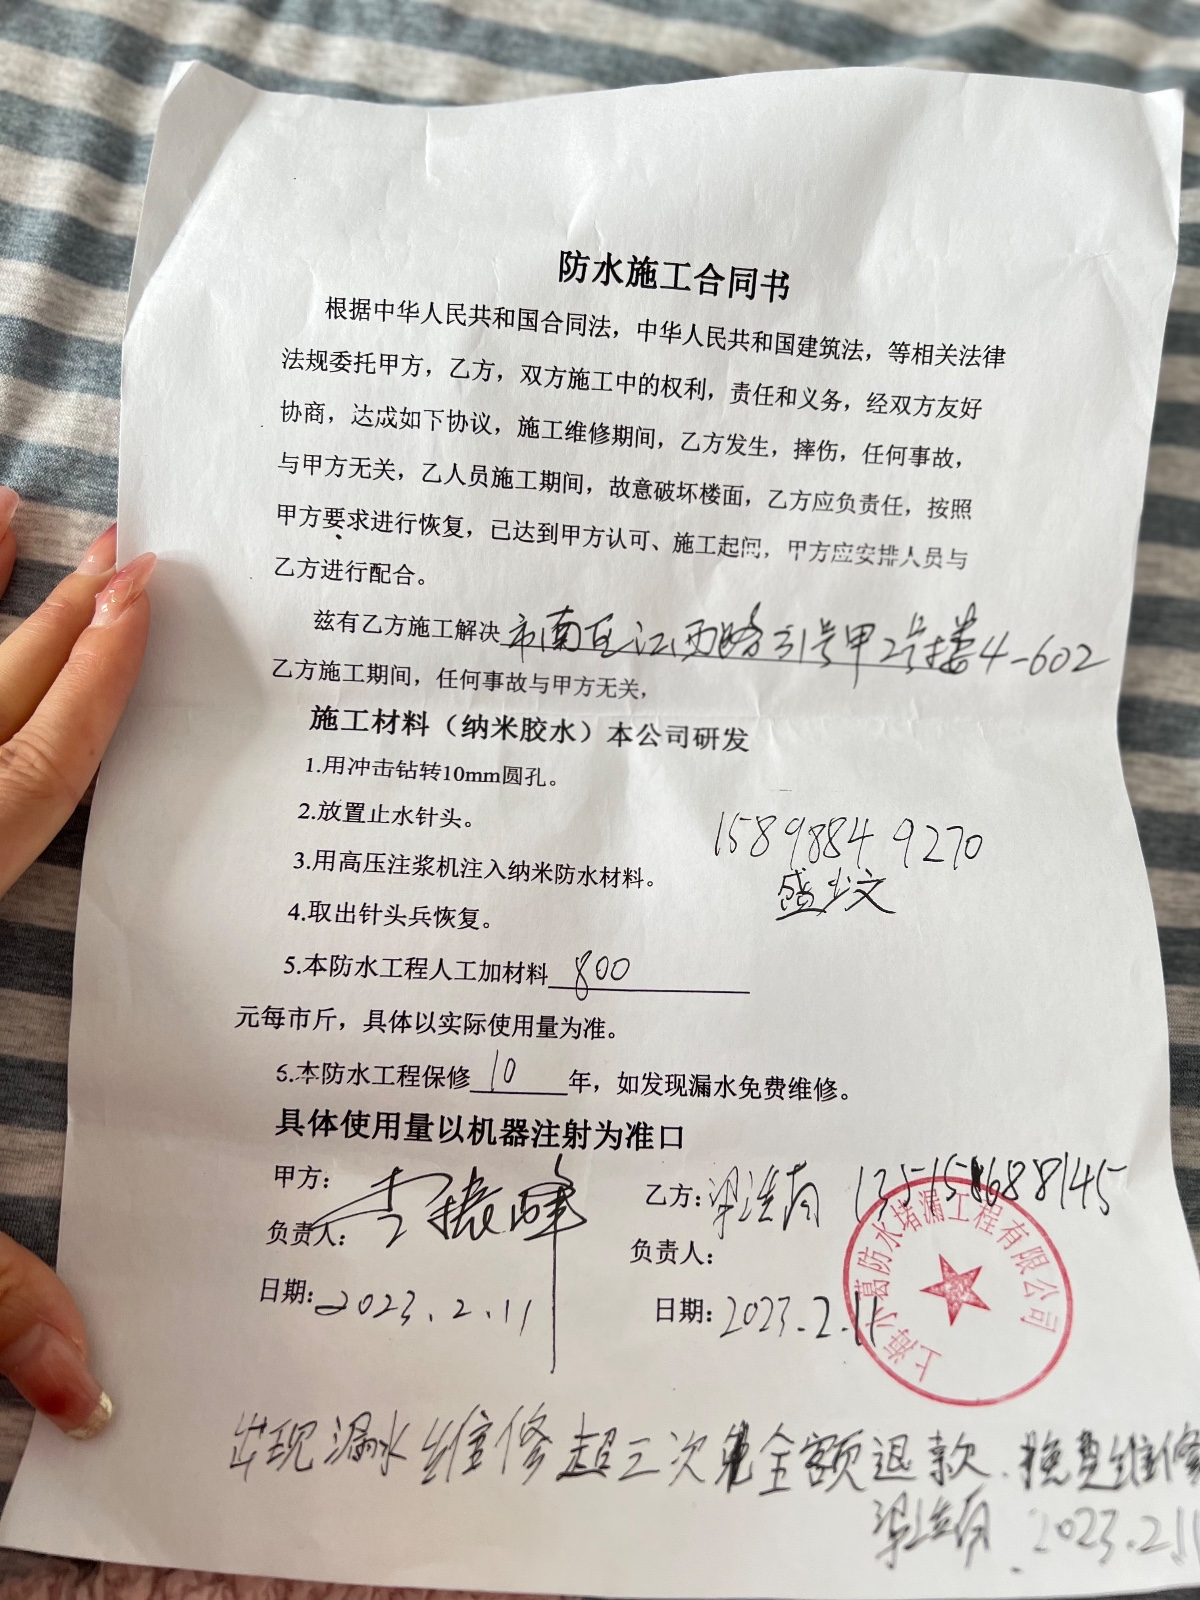 防水施工合同书
根据中华人民共和国合同法，中华人民共和国建筑法，等相关法律
法规委托甲方，乙方，双方施工中的权利，责任和义务，经双方友好
协商，达成如下协议，施工维修期间，乙方发生，摔伤，任何事故，
与甲方无关，乙人员施工期间，故意破坏楼面，乙方应负责任，按照
甲方要求进行恢复，已达到甲方认可、施工起间，甲方应安排人员与
乙方进行配合。
兹有乙方施工解决市南区江西路31号甲2号楼4-602
乙方施工期间，任何事故与甲方无关，
施工材料（纳米胶水）本公司研发
1.用冲击钻转10mm圆孔。
2.放置止水针头。
15898849270
3.用高压注浆机注入纳米防水材料。
盛少文
4.取出针头兵恢复。
5.本防水工程人工加材料800
元每市斤，具体以实际使用量为准。
6.本防水工程保修10年，如发现漏水免费维修。
具体使用量以机器注射为准口
甲方：李振峰
乙方：
负责人：
负责人：
日期：2023.2.11
日期：2023.2.11
上海 葛防水堵漏工程有限公司
出现漏水维修超三次 全额退款. 维修
2023.2.11